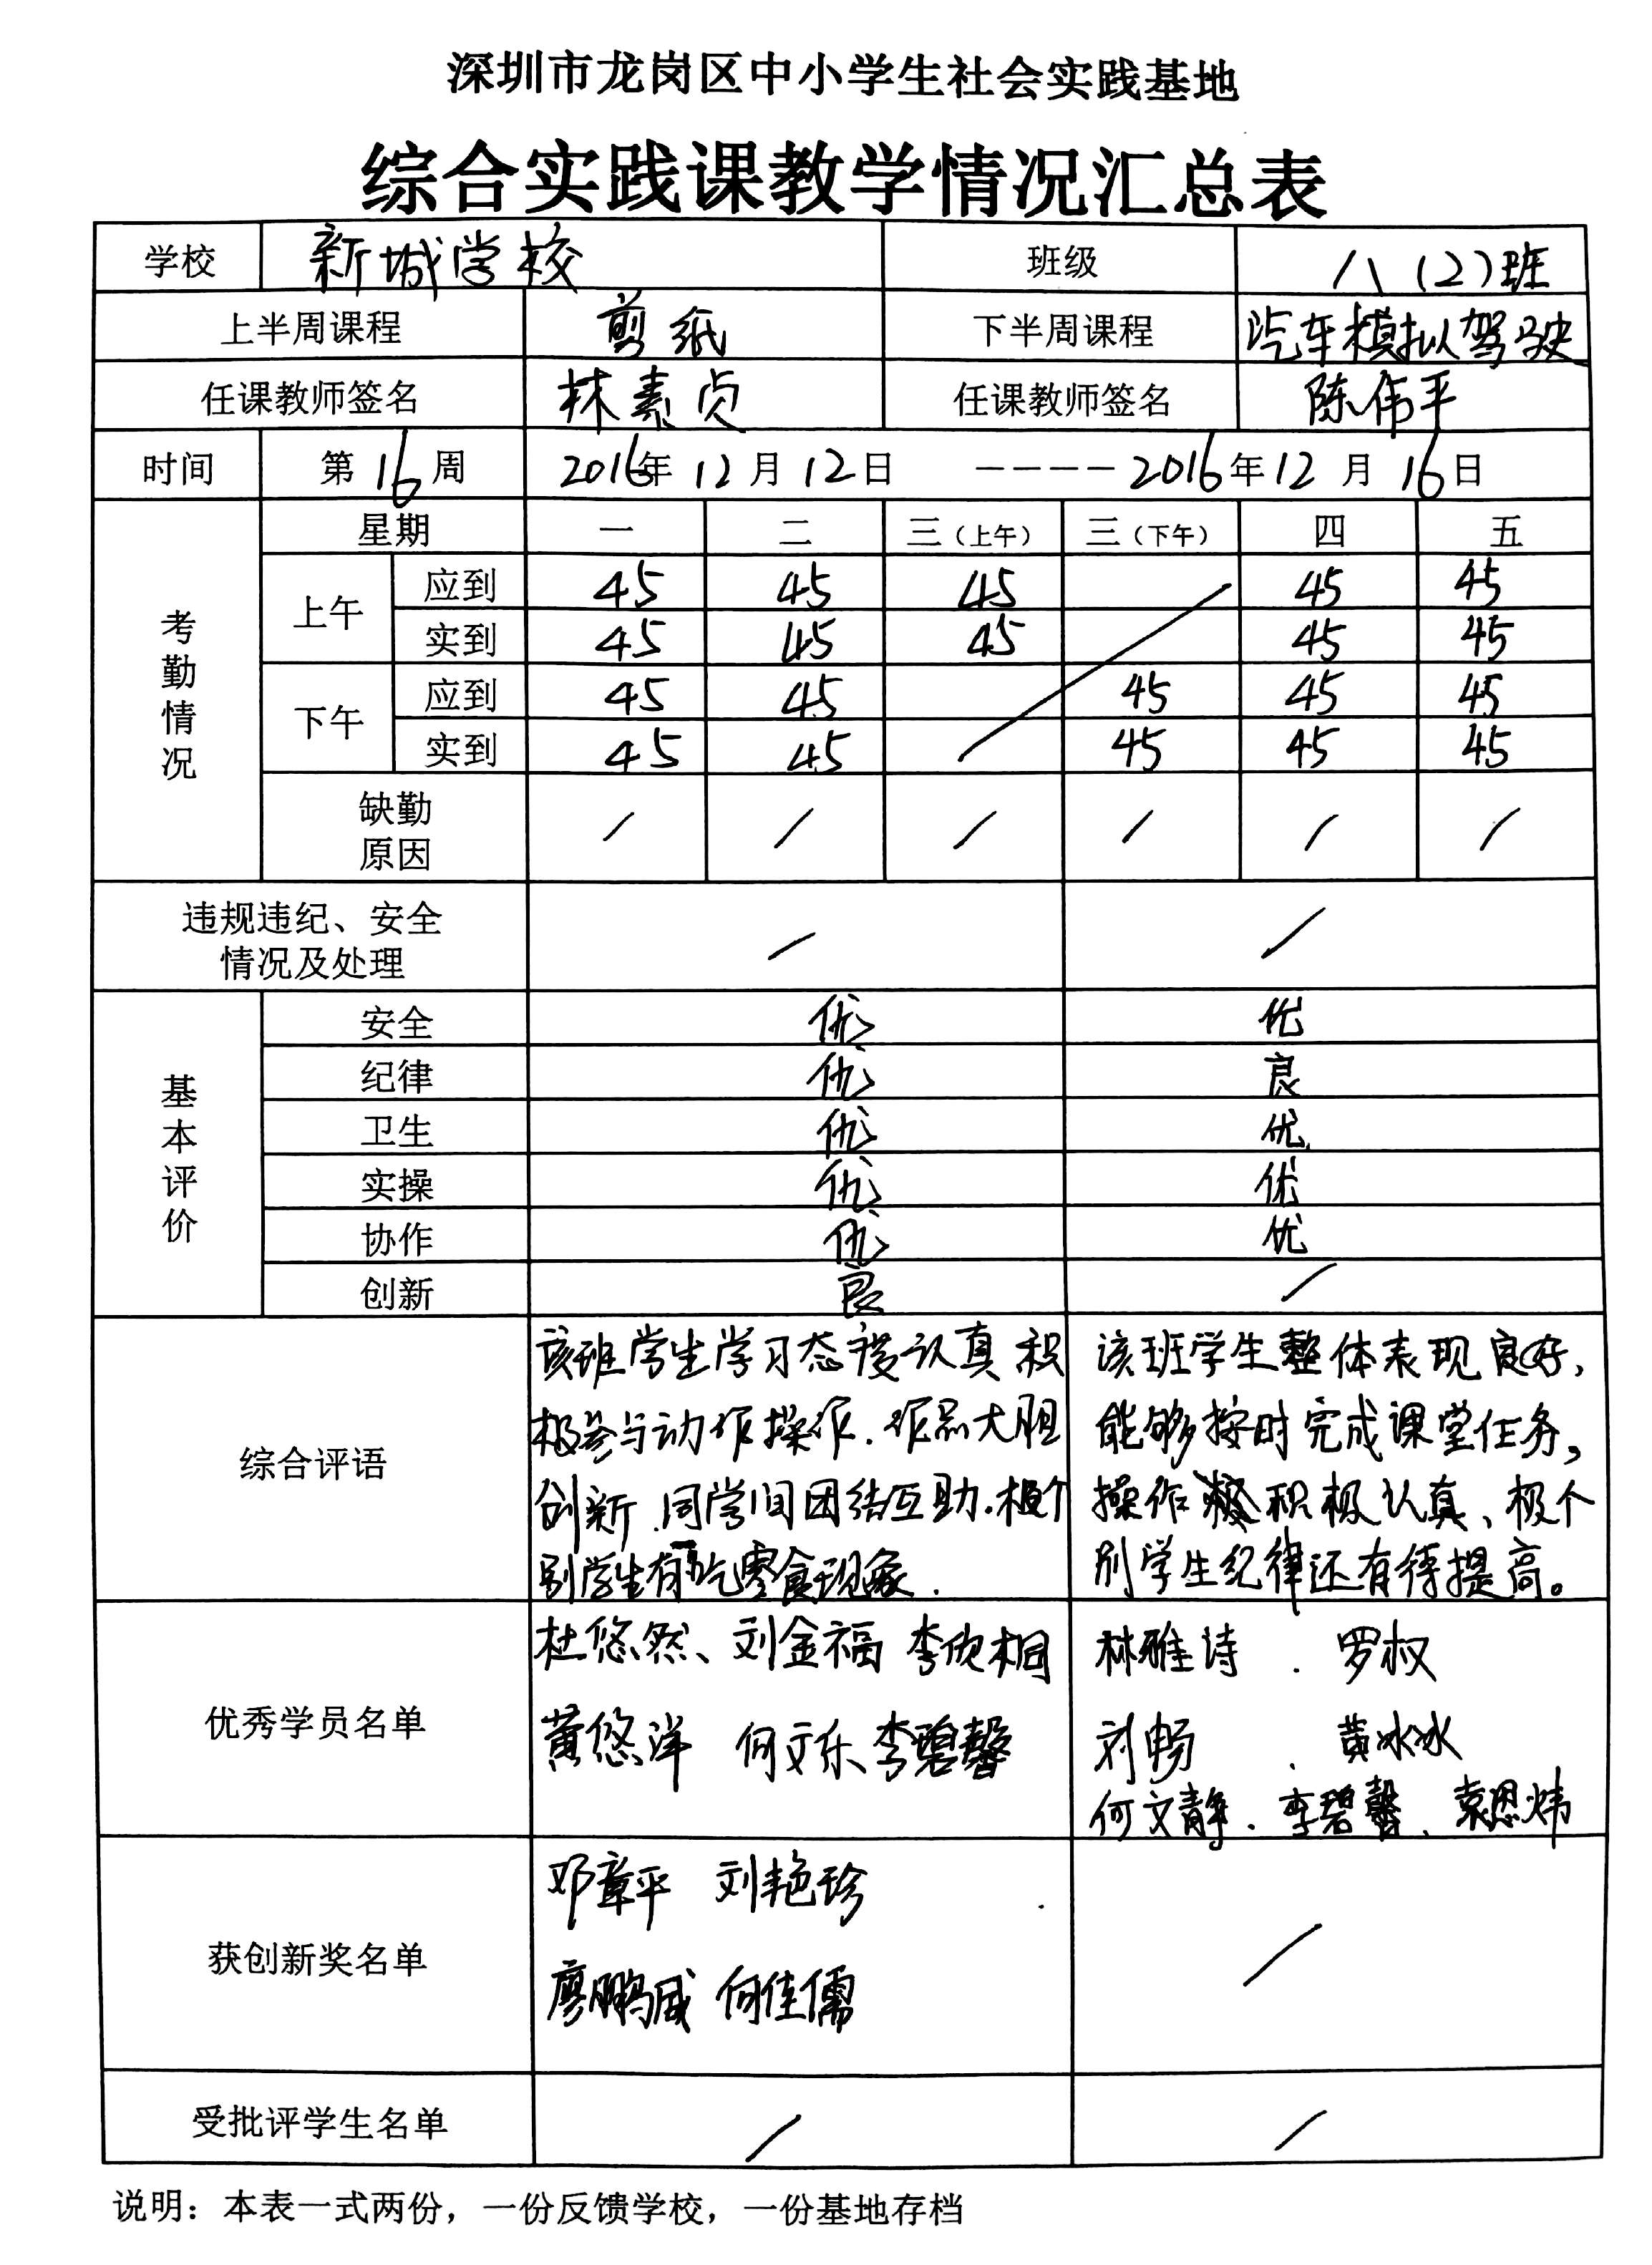 深圳市龙岗区中小学生社会实践基地
综合实践课教学情况汇总表
学校 新城学校 班级 八（2）班
上半周课程 剪纸 下半周课程 汽车模拟驾驶
任课教师签名 林素贞 任课教师签名 陈伟平
时间 第16周 2016年12月12日 ----2016年12月16日
考勤情况
星期 一 二 三（上午） 三（下午） 四 五
上午 应到 45 45 45 45 45
实到 45 45 45 45 45
下午 应到 45 45 45 45 45
实到 45 45 45 45 45
缺勤
原因 / / / / / /
违规违纪、安全
情况及处理 / /
基本评价
安全 优 优
纪律 优 良
卫生 优 优
实操 优 优
协作 优 优
创新 良 /
综合评语
该班学生学习态度认真积
极参与动作操作.作品大胆
创新.同学间团结互助.极个
别学生有吃零食现象.
该班学生整体表现良好,
能够按时完成课堂任务,
操作积极认真、极个
别学生纪律还有待提高。
优秀学员名单
杜悠然、刘金福 李欣桐
黄悠洋 何文乐 李碧馨
林雅诗.罗权
刘畅.黄冰冰
何文静.李碧馨.袁恩炜
获创新奖名单
邓章平 刘艳珍
廖鹏威 何佳儒
/
受批评学生名单 / /
说明：本表一式两份，一份反馈学校，一份基地存档